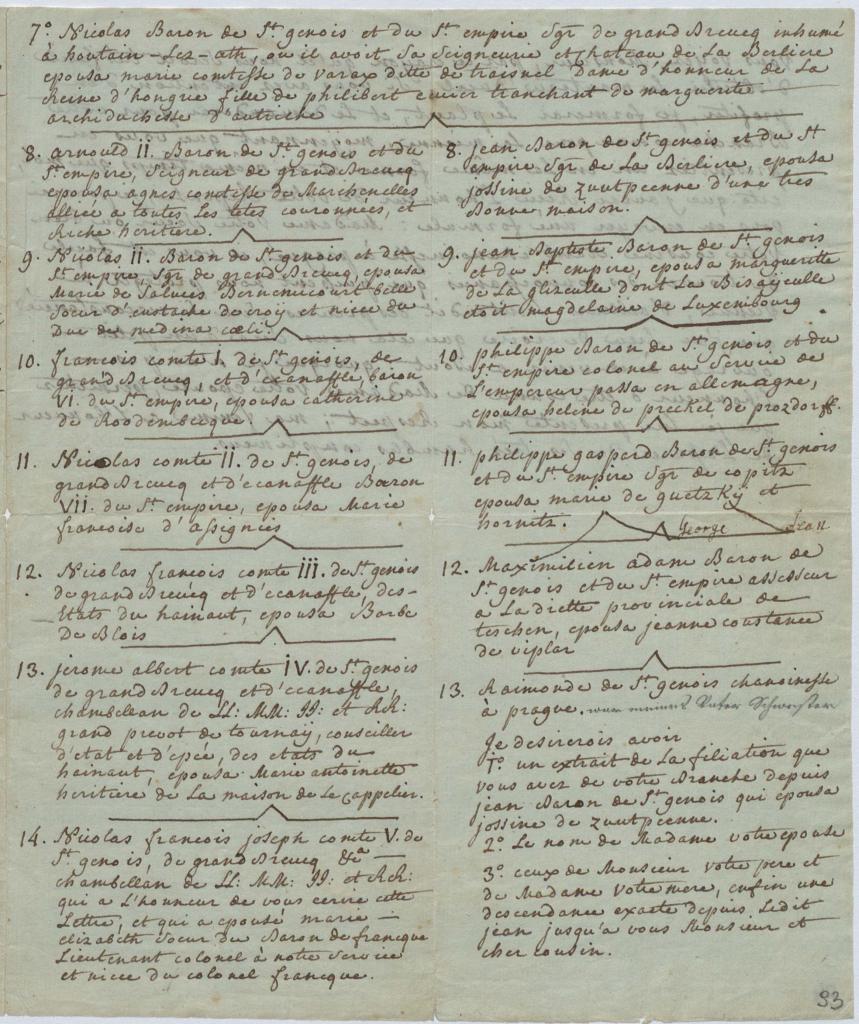 7.° Nicolas Baron de St. genois et du St. empire Sgr de grand Breucq inhumé
à houtain-Lez-ath, ou il avoit Sa Seigneurie et chateau de La Berliere
epousa marie comtesse de varax ditte de traisnel Dame d'honneur de La
Reine d'hongrie fille de philibert ecuier tranchant de marguerite
archiduchesse d'autriche
8. arnould II. Baron de St. genois et du
St. empire, Seigneur de grand Breucq
epousa agnes comtesse de Marchenelles
alliée a toutes Les têtes couronnées, et
Riche heritiere.
9. Nicolas II. Baron de St. genois et du
St. empire, Sgr. de grand Breucq, epousa
Marie de Saluces Bernemicourt belle
Soeur d'eustache de croy et niece du
Duc de medina coeli.
10. francois comte I. de St. genois, de
grand Breucq, et d'ecanaffle, baron
VI. du St. empire, epousa catherine
de Roodembecque.
11. Nicolas comte II. de St. genois, de
grand Breucq et d'ecanaffle Baron
VII. du St. empire, epousa Marie
francoise d'assignies
12. Nicolas francois comte III. de St. genois
de grand Breucq et d'ecanaffle, des-
Etats du hainaut, epousa Barbe
De Blois
13. jerome albert comte IV. de St. genois
de grand Breucq et d'ecanaffle,
chambellan de LL: MM: II: et RR:
grand prevot de tournay, conseiller
d'etat et d'epée, des etats du
hainaut, epousa Marie antoinette
heritiere de La maison de Le Cappelier.
14. Nicolas francois joseph comte V. de
St. genois, de grand Breucq &a —
chambellan de LL: MM: II: et RR:
qui a L'honneur de vous ecrire cette
Lettre, et qui a epousé marie —
elizabeth Soeur du Baron de francque
Lieutenant colonel à notre Service
et niece du colonel francque.
8. jean Baron de St. genois et du St.
empire Sgr. de La Berliere, epousa
jossine de zuutpeenne d'une tres
Bonne maison.
9. jean Baptiste Baron de St. genois
et du St. empire, epousa margueritte
de La glizeulle dont La Bisayeulle
etoit magdelaine de Luxembourg.
10. philippe Baron de St. genois et du
St. empire colonel au Service de
L'empereur passa en allemagne,
epousa helene de preckel de prozdorff.
11. philippe gasperd Baron de St. genois
et du St. empire Sgr de copitz
epousa marie de guetzky et
hornitz.
George Jean
12. Maximilien adam Baron de
St. genois et du St. empire assesseur
a La diette provinciale de
teschen, epousa jeanne constance
de viplar
13. Raimonde de St. genois chanoinesse
à prague. war meines Vater Schwester
Je desirerois avoir
1.° un extrait de La filiation que
vous avez de votre Branche depuis
jean Baron de St. genois qui epousa
jossine de zuutpeenne.
2.° Le nom de Madame votre epouse
3.° ceux de Monsieur votre pere et
de Madame votre mere, enfin une
descendance exacte depuis Ledit
jean jusqu'a vous Monsieur et
cher cousin.
93